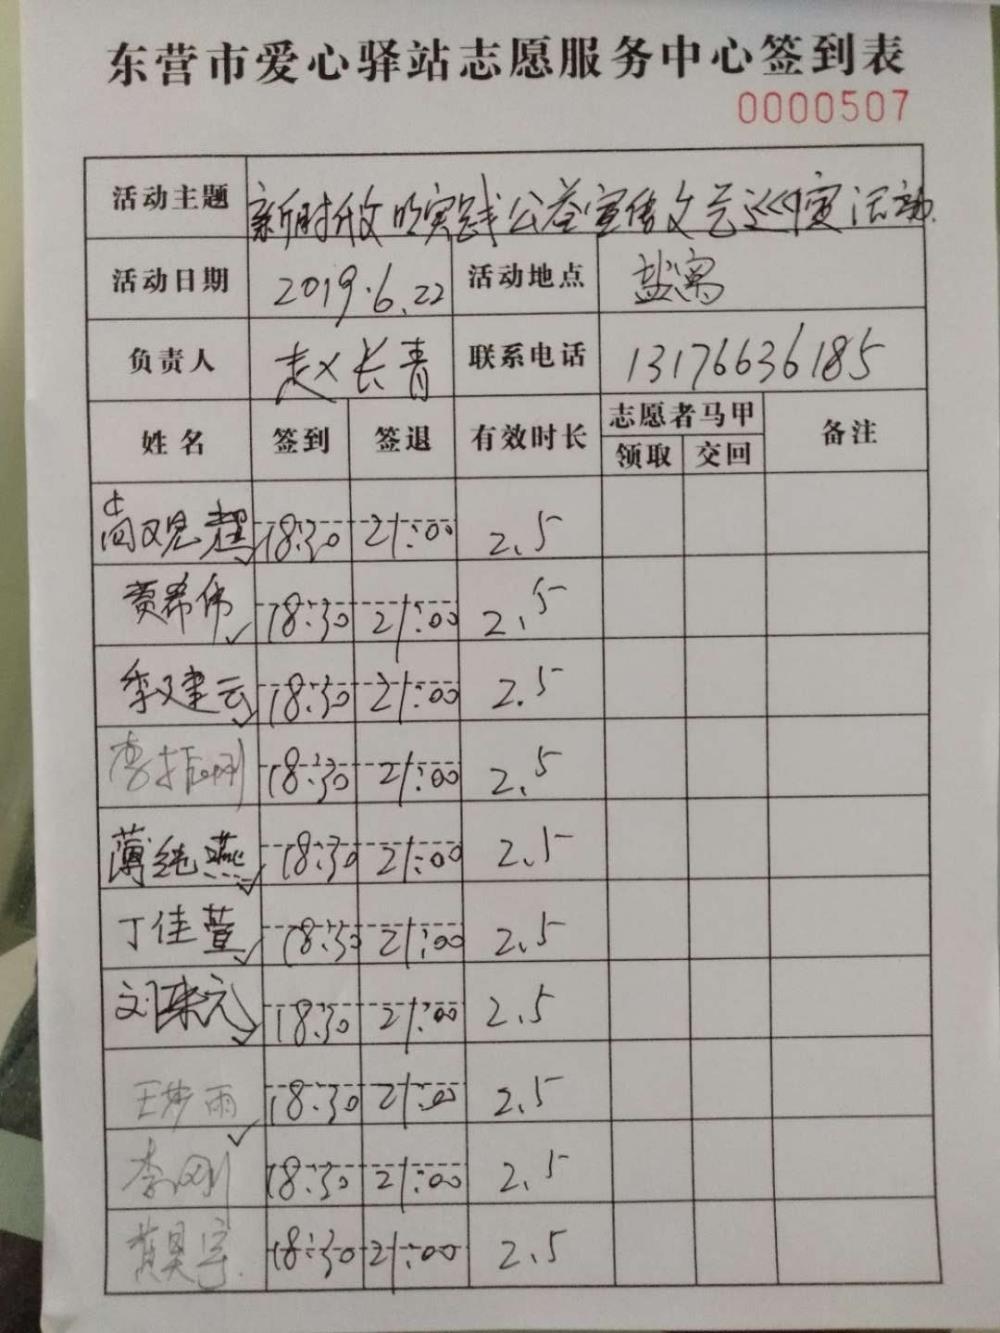 东营市爱心驿站志愿服务中心签到表
0000507
活动主题 新时代文明实践公益宣传文艺巡演活动
活动日期 2019.6.22 活动地点 盐窝
负责人 赵长青 联系电话 13176636185
姓名 签到 签退 有效时长 志愿者马甲 备注
领取 交回
尚观超 18:30 21:00 2.5
贾希伟 18:30 21:00 2.5
季建云 18:30 21:00 2.5
李振刚 18:30 21:00 2.5
薄纯燕 18:30 21:00 2.5
丁佳萱 18:30 21:00 2.5
刘来元 18:30 21:00 2.5
王梦雨 18:30 21:00 2.5
李刚 18:30 21:00 2.5
黄昊宇 18:30 21:00 2.5